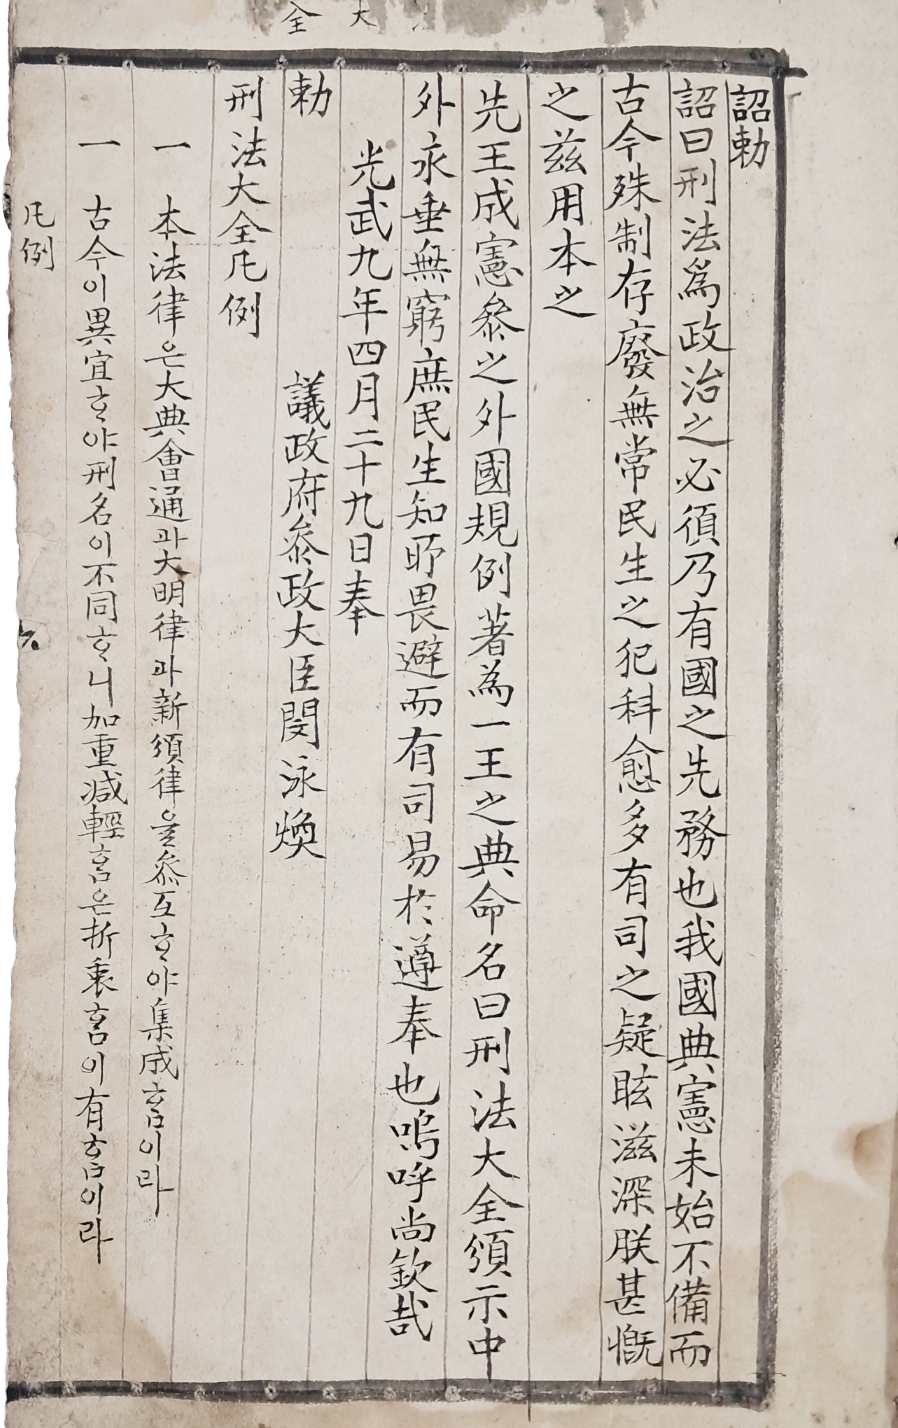 大全
詔勅
詔曰刑法爲政治之必須乃有國之先務也我國典憲未始不備而
古今殊制存廢無常民生之犯科愈多有司之疑眩滋深朕甚慨
之茲用本之
先王成憲叅之外國規例著爲一王之典命名曰刑法大全頒示中
外永垂無窮庶民生知所畏避而有司易於遵奉也嗚呼尙欽哉
光武九年四月二十九日奉
勅
議政府叅政大臣閔泳煥
刑法大全凡例
一 本法律은大典會通과大明律과新頒律을叅互ᄒᆞ야集成ᄒᆞᆷ이라
一 古今이異宜ᄒᆞ야刑名이不同ᄒᆞ니加重減輕ᄒᆞᆷ은折衷ᄒᆞᆷ이有ᄒᆞᆷ이라
凡例